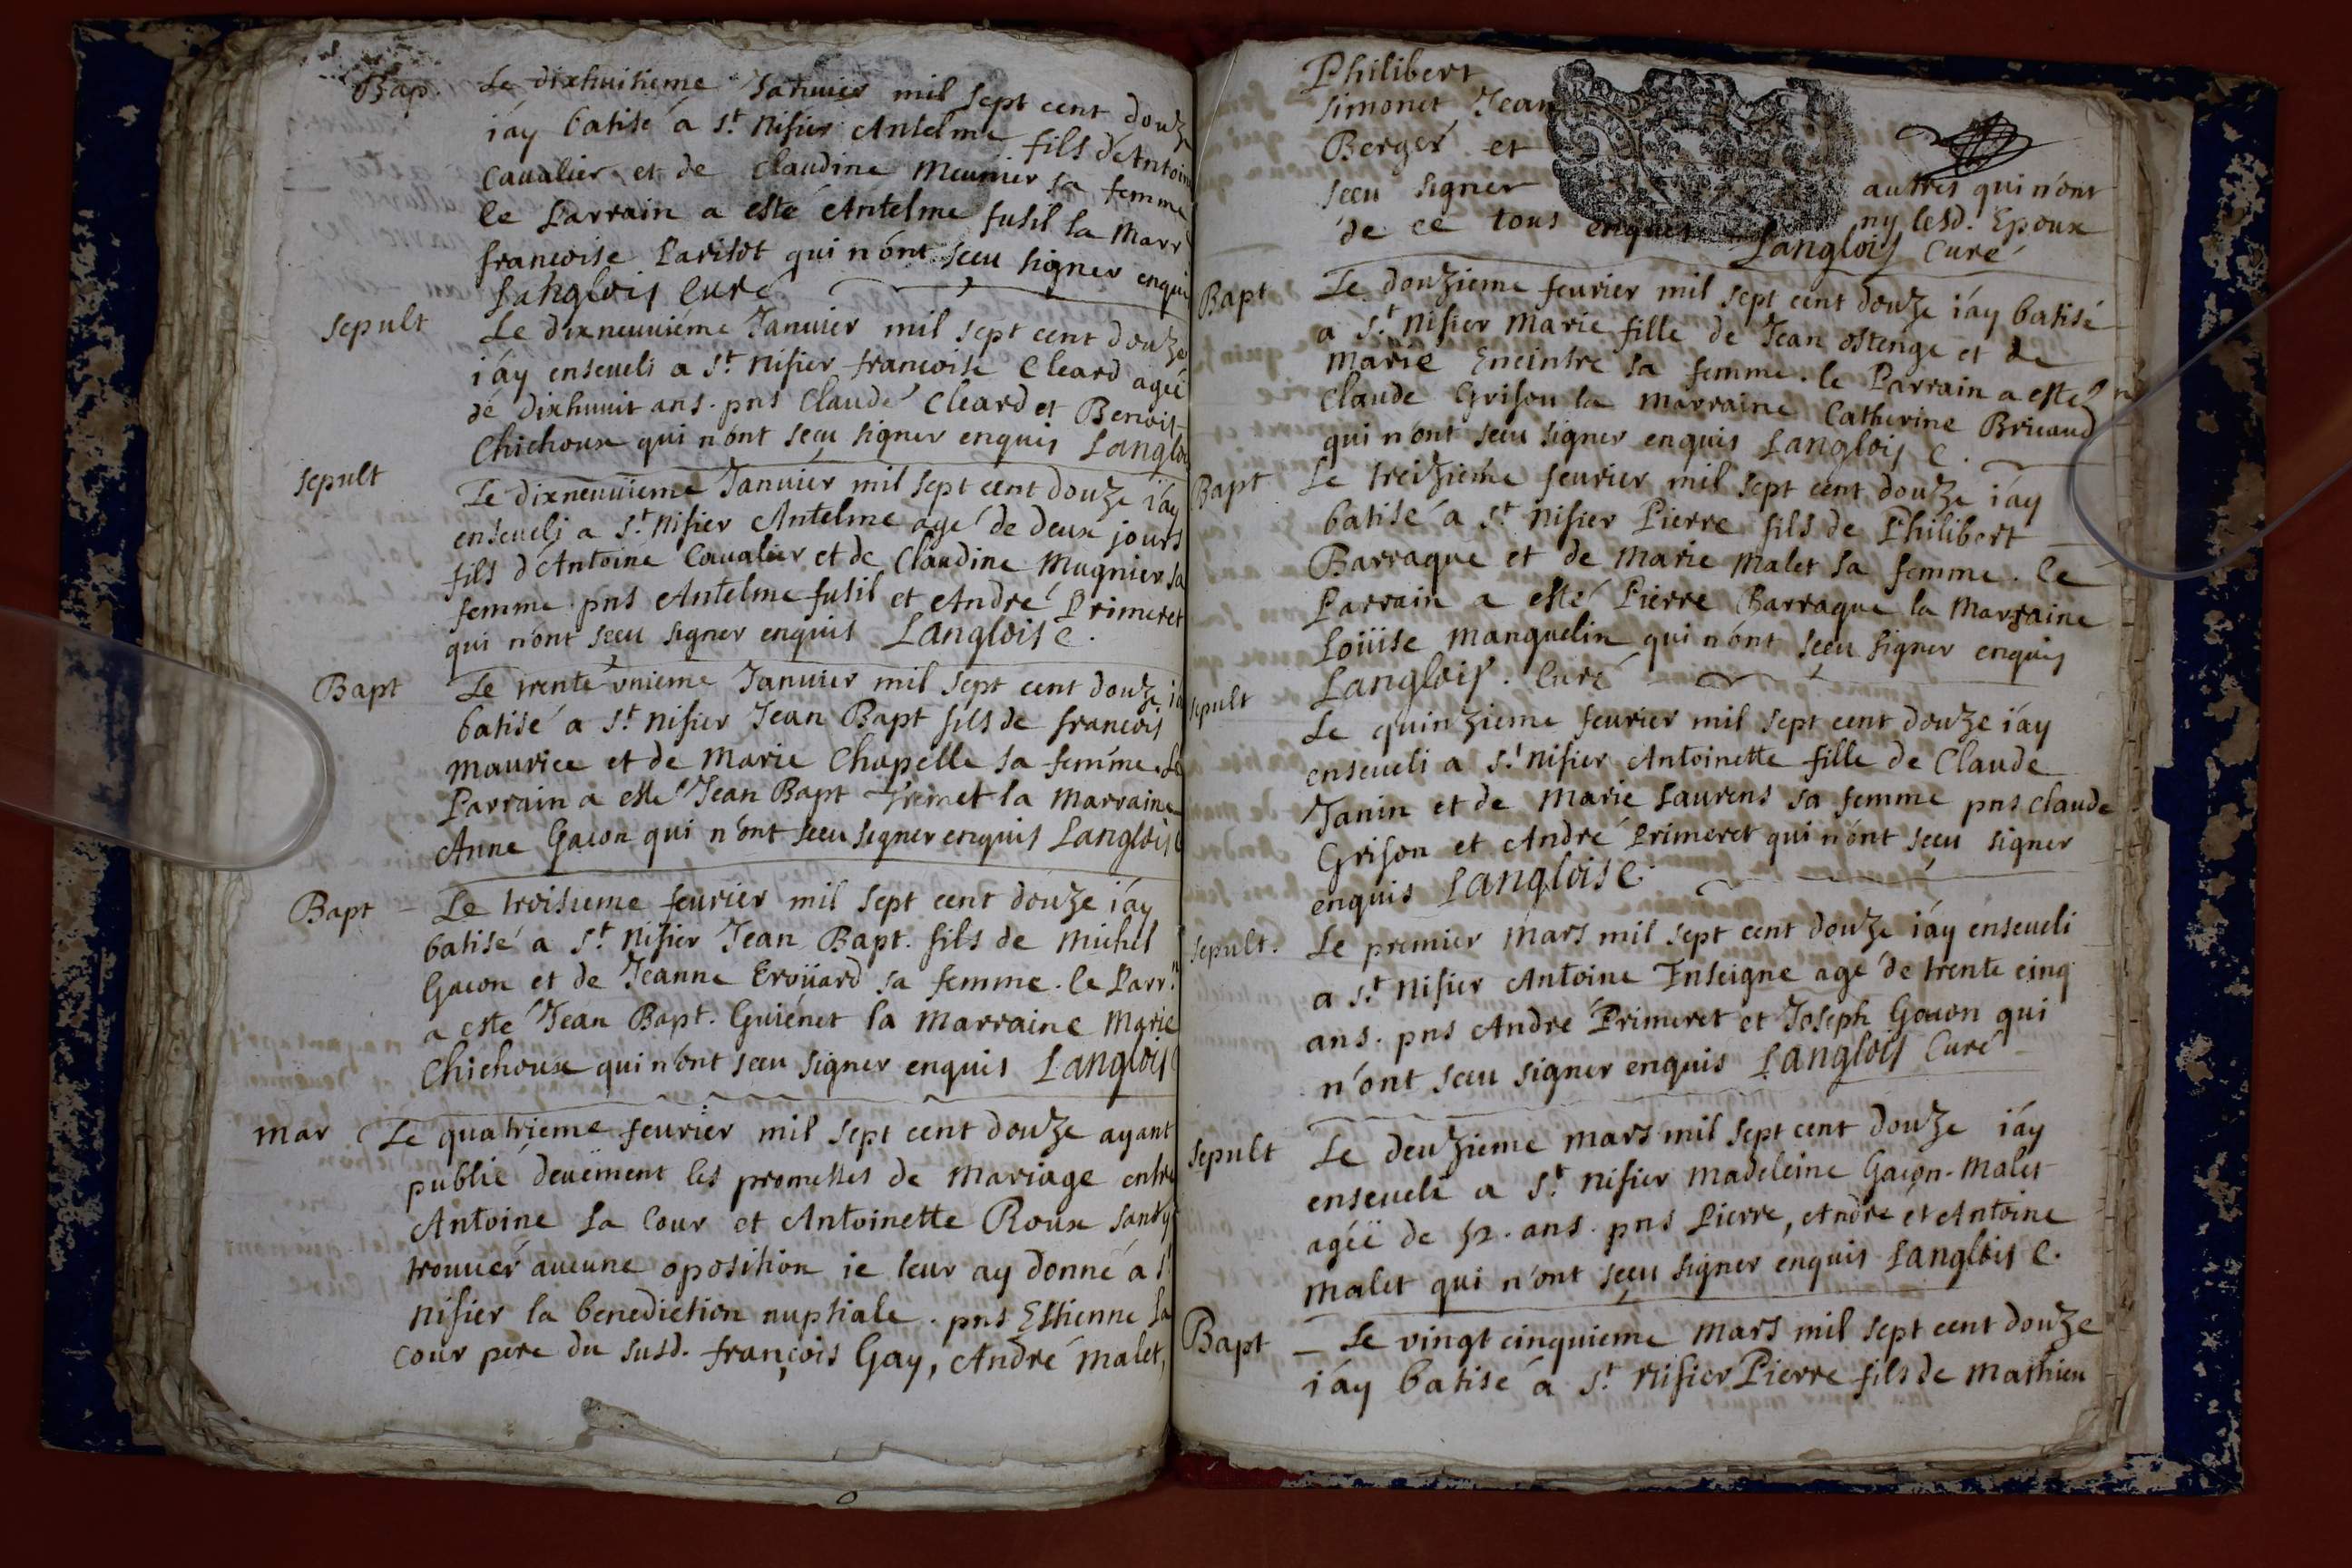 Bap. Le dixhuitieme Januier mil sept cent douze
i'ay batisé a St. Nisier Antelme fils d'Antoine
Caualier et de Claudine Meunier sa femme
le Parrain a esté Antelme fusil la Marr
francoise Parisot qui n'ont sceu signer enquis
Langlois Curé
Sepult Le dixneuuiéme Januier mil sept cent douze
i'ay enseueli a St. Nisier francoise Cleard ageë
de dixhuuit ans. pns Claude Cleard et Benoit
Chichoux qui n'ont sceu signer enquis Langlois
Sepult Le dixneuuieme Januier mil sept cent douze i'ay
enseueli a St. Nisier Antelme agé de deux jours
fils d'Antoine Caualier et de Claudine Mugnier sa
femme pns Antelme fusil et André Primeret
qui n'ont sceu signer enquis Langlois C.
Bapt Le trente vnieme Januier mil sept cent douze i'a
batisé a St. Nisier Jean Bapt fils de francois
Maurice et de Marie Chapelle sa femme. Le
Parrain a esté Jean Bapt la Marraine
Anne Gacon qui n'ont sceu signer enquis Langlois C
Bapt Le troisieme feurier mil sept cent douze i'ay
batisé a St. Nisier Jean Bapt. fils de Michel
Gacon et de Jeanne Eroüard sa femme. le Parr.n
a esté Jean Bapt. Guiénet la Marraine Marie
Chichoux qui n'ont sceu signer enquis Langlois C
Mar Le quatrieme feurier mil sept cent douze ayant
publié deuëment les promesses de Mariage entre
Antoine La Cour et Antoinette Roux sans y
trouuer aucune oposition ie leur ay donné a St
Nisier la benediction nuptiale. pns Estienne La
Cour pere du susd. françois Gay, André Malet,
Philibert
Simonet Jean
Berger et autres qui n'ont
sceu signer ny lesd. Epoux
de ce tous enquis Langlois Curé
Bapt Le douzieme feurier mil sept cent douze i'ay batisé
a St. Nisier Marie fille de Jean Ostenge et de
Marie Eneintre sa femme. le Parrain a esté
Claude Grison la Marraine Catherine Briuaud
qui n'ont sceu signer enquis Langlois C.
Bapt Le treizieme feurier mil sept cent douze i'ay
batisé a St Nisier Pierre fils de Philibert
Barraque et de Marie Malet sa femme. le
Parrain a esté Pierre Barraque la Marraine
Loüise Manguelin qui n'ont sceu signer enquis
Langlois. Curé
Sepult Le quinzieme feurier mil sept cent douze i'ay
enseueli a St Nisier Antoinette fille de Claude
Janin et de Marie Laurens sa femme pns Claude
Grison et André Primeret qui n'ont sceu signer
enquis Langlois C.
Sepult. Le premier Mars mil sept cent douze i'ay enseueli
a St. Nisier Antoine Enseigne agé de trente cinq
ans. pns André Primeret et Joseph Gacon qui
n'ont sceu signer enquis Langlois Curé
Sepult Le deuzieme Mars mil sept cent douze i'ay
enseueli a St. Nisier Madeleine Gacon-Malet
ageë de 52. ans. pns Pierre, André et Antoine
Malet qui n'ont sceu signer enquis Langlois C.
Bapt Le vingt cinquieme Mars mil sept cent douze
i'ay batisé a St. Nisier Pierre fils de Mathieu